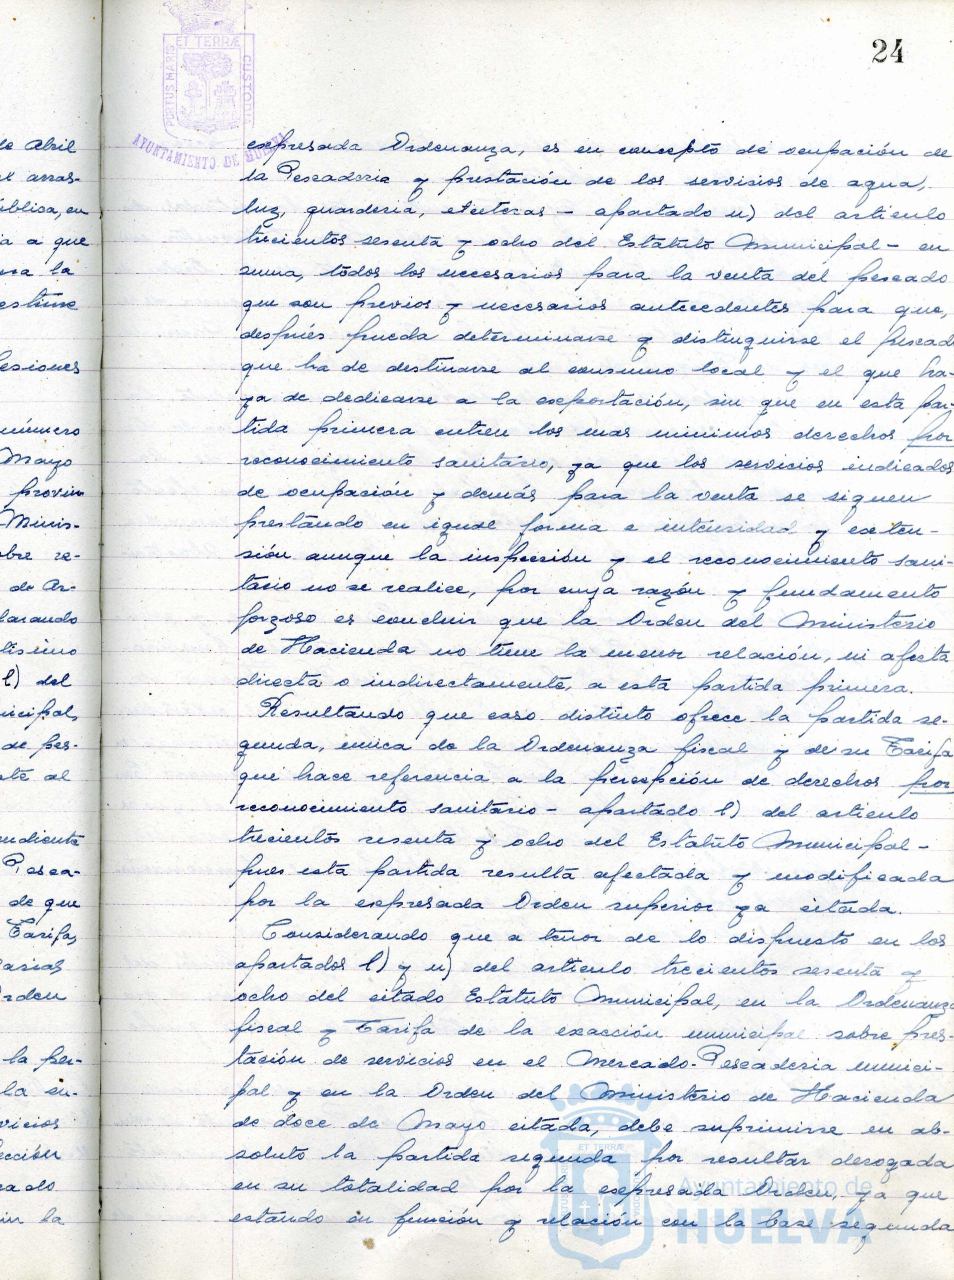 24
PORTUS MARIS ET TERRÆ CUSTODIA
AYUNTAMIENTO DE HUELVA
expresada Ordenanza, es en concepto de ocupación de
la Pescaderia y prestación de los servicios de agua,
luz, guarderia, etcéteras - apartado u) del articulo
trecientos sesenta y ocho del Estatuto Municipal - en
suma, todos los necesarios para la venta del pescado
que son previos y necesarios antecedentes para que,
después pueda determinarse y distinguirse el pescado
que ha de destinarse al consumo local y el que ha-
ya de dedicarse a la exportación, sin que en esta par-
tida primera entren los mas minimos derechos por
reconocimiento sanitario, ya que los servicios indicados
de ocupación y demás para la venta se siguen
prestando en igual forma e intensidad y exten-
sión aunque la inspección y el reconocimiento sani-
tario no se realice, por cuya razón y fundamento
forzoso es concluir que la Orden del Ministerio
de Hacienda no tiene la menor relación, ni afecta
directa o indirectamente, a esta partida primera.
Resultando que caso distinto ofrece la partida se-
gunda, unica de la Ordenanza fiscal y de su Tarifa
que hace referencia a la percepción de derechos por
reconocimiento sanitario - apartado l) del articulo
trecientos sesenta y ocho del Estatuto Municipal -
pues esta partida resulta afectada y modificada
por la expresada Orden superior ya citada.
Considerando que a tenor de lo dispuesto en los
apartados l) y u) del articulo trecientos sesenta y
ocho del citado Estatuto Municipal, en la Ordenanza
fiscal y Tarifa de la exacción municipal sobre pres-
tación de servicios en el Mercado-Pescaderia munici-
pal y en la Orden del Ministerio de Hacienda
de doce de Mayo citada, debe suprimirse en ab-
soluto la partida segunda por resultar derogada
en su totalidad por la expresada Orden, ya que
estando en función y relación con la base segunda
de Abril
arras-
ública, en
a que
la
estime
esiones
número
Mayo
provin
Minis-
obre re-
de Ar-
larando
l) del
nicipal,
de pes-
al
ndiente
Pesca-
de que
Tarifa,
Orden
la per-
la en-
vicios
ección
la
ET TERRÆ
Ayuntamiento de
HUELVA